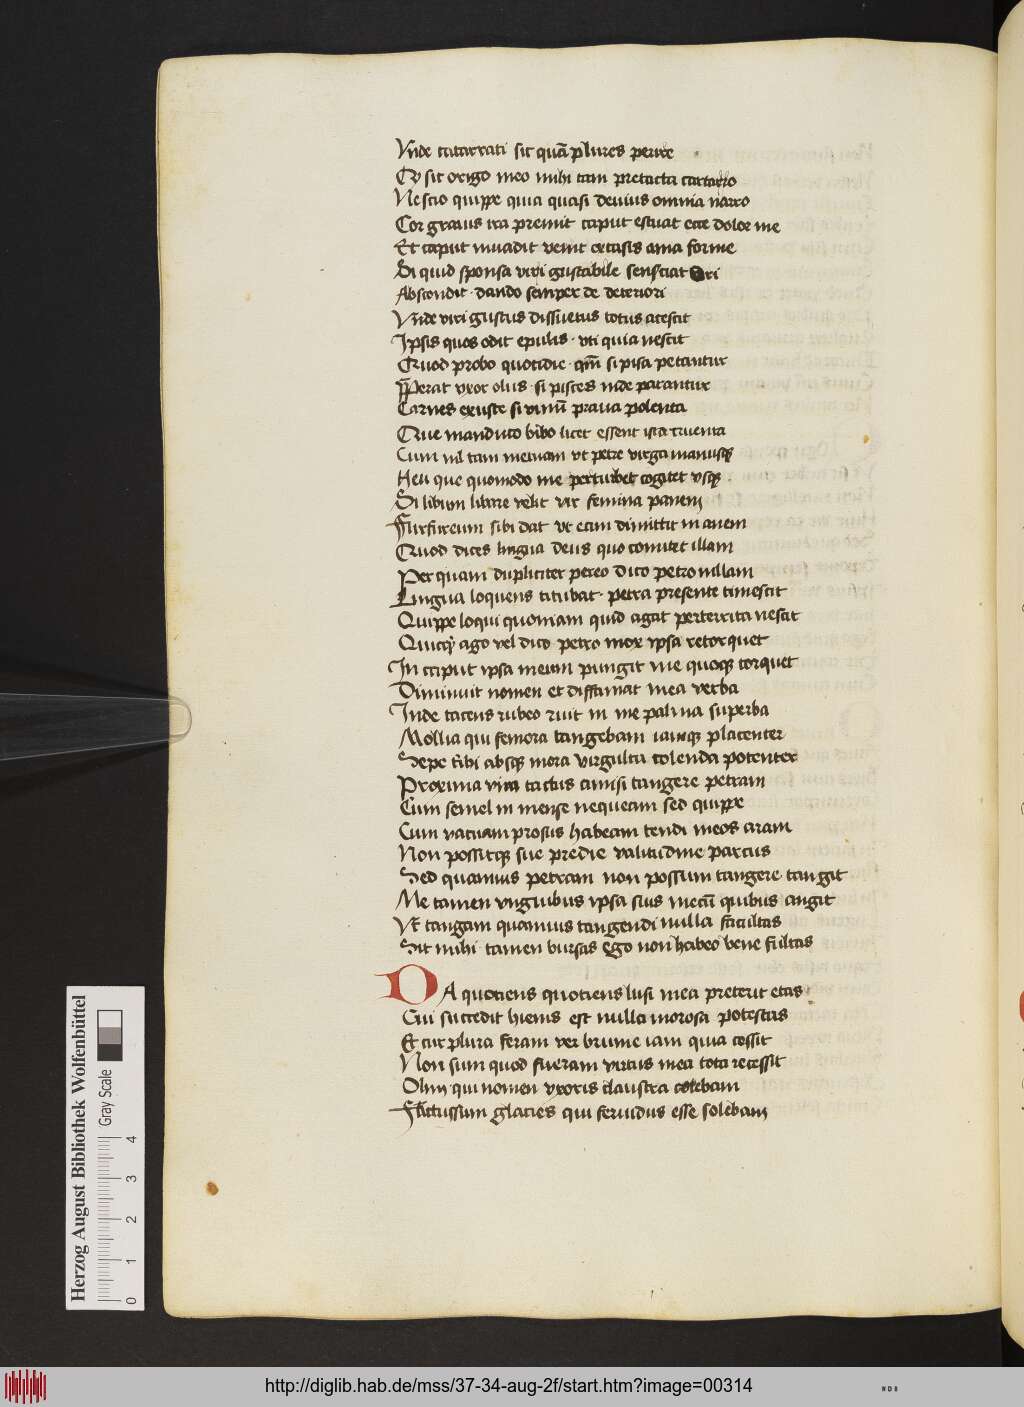 Vnde catarrati sit quam plures perire
Cum sit origo meo mihi tam pretacta cattarro
Nescio quippe quia quasi devius omnia narro
Cor grauis ira premit caput estuat ecce dolor me
Et caput inuadit venit extasis ama forme
Si quid sponsa viri gustabile sensciat ori
Abscondit · dando semper de deteriori
Vnde viri gustus dissuetus totus acescit
Ipsis quos odit epulis · vti quia nescit
Quod probo quotidie · quoniam si pisa petantur
Properat vxor olus · si pisces inde parantur
Carnes exuste si vinum praua polenta
Que manduco bibo licet essent ista cruenta
Cum nil tam metuam vt petre virga manusque
Heu que quomodo me perturbet cogitet vsque
Si libum libare velit vir femina panem
Furfureum sibi dat vt eum dimittit inanem
Quod dices lingua deus quo comitet illam
Per quam dupliciter pereo dico petronillam
Lingua loquens titubat · petra presente timescit
Quippe loqui quoniam quid agat perterrita nescit
Quicquid ago vel dico petro mox ipsa retorquet
In caput ipsa meum pungit me quoque torquet
Diminuit nomen et diffamat mea verba
Inde tacens rubeo ruit in me palma superba
Mollia qui femora tangebam iamque placenter
Sepe tibi absque mora virgulta colenda potenter
Proxima vina tactus amisi tangere petram
Cum semel in mense nequeam sed quippe
Cum vacuam prosus habeam tendi meos aram
Non possitque sue predie valitudine parcus
Sed quamuis petram non possum tangere tangit
Me tamen vnguibus ipsa suis mecum quibus angit
Vt tangam quamuis tangendi nulla facultas
Sit mihi tamen bursas ego non habeo bene fultas
DA quotiens quotiens lusi mea preterit etas
Cui succedit hiems est nulla morosa potestas
Et cur plura feram ver brume iam quia cessit
Non sum quod fueram virtus mea tota recessit
Olim qui nomen vxoris claustra colebam
Factus sum glacies qui feruidus esse solebam
Herzog August Bibliothek Wolfenbüttel
Gray Scale
0 1 2 3 4
http://diglib.hab.de/mss/37-34-aug-2f/start.htm?image=00314